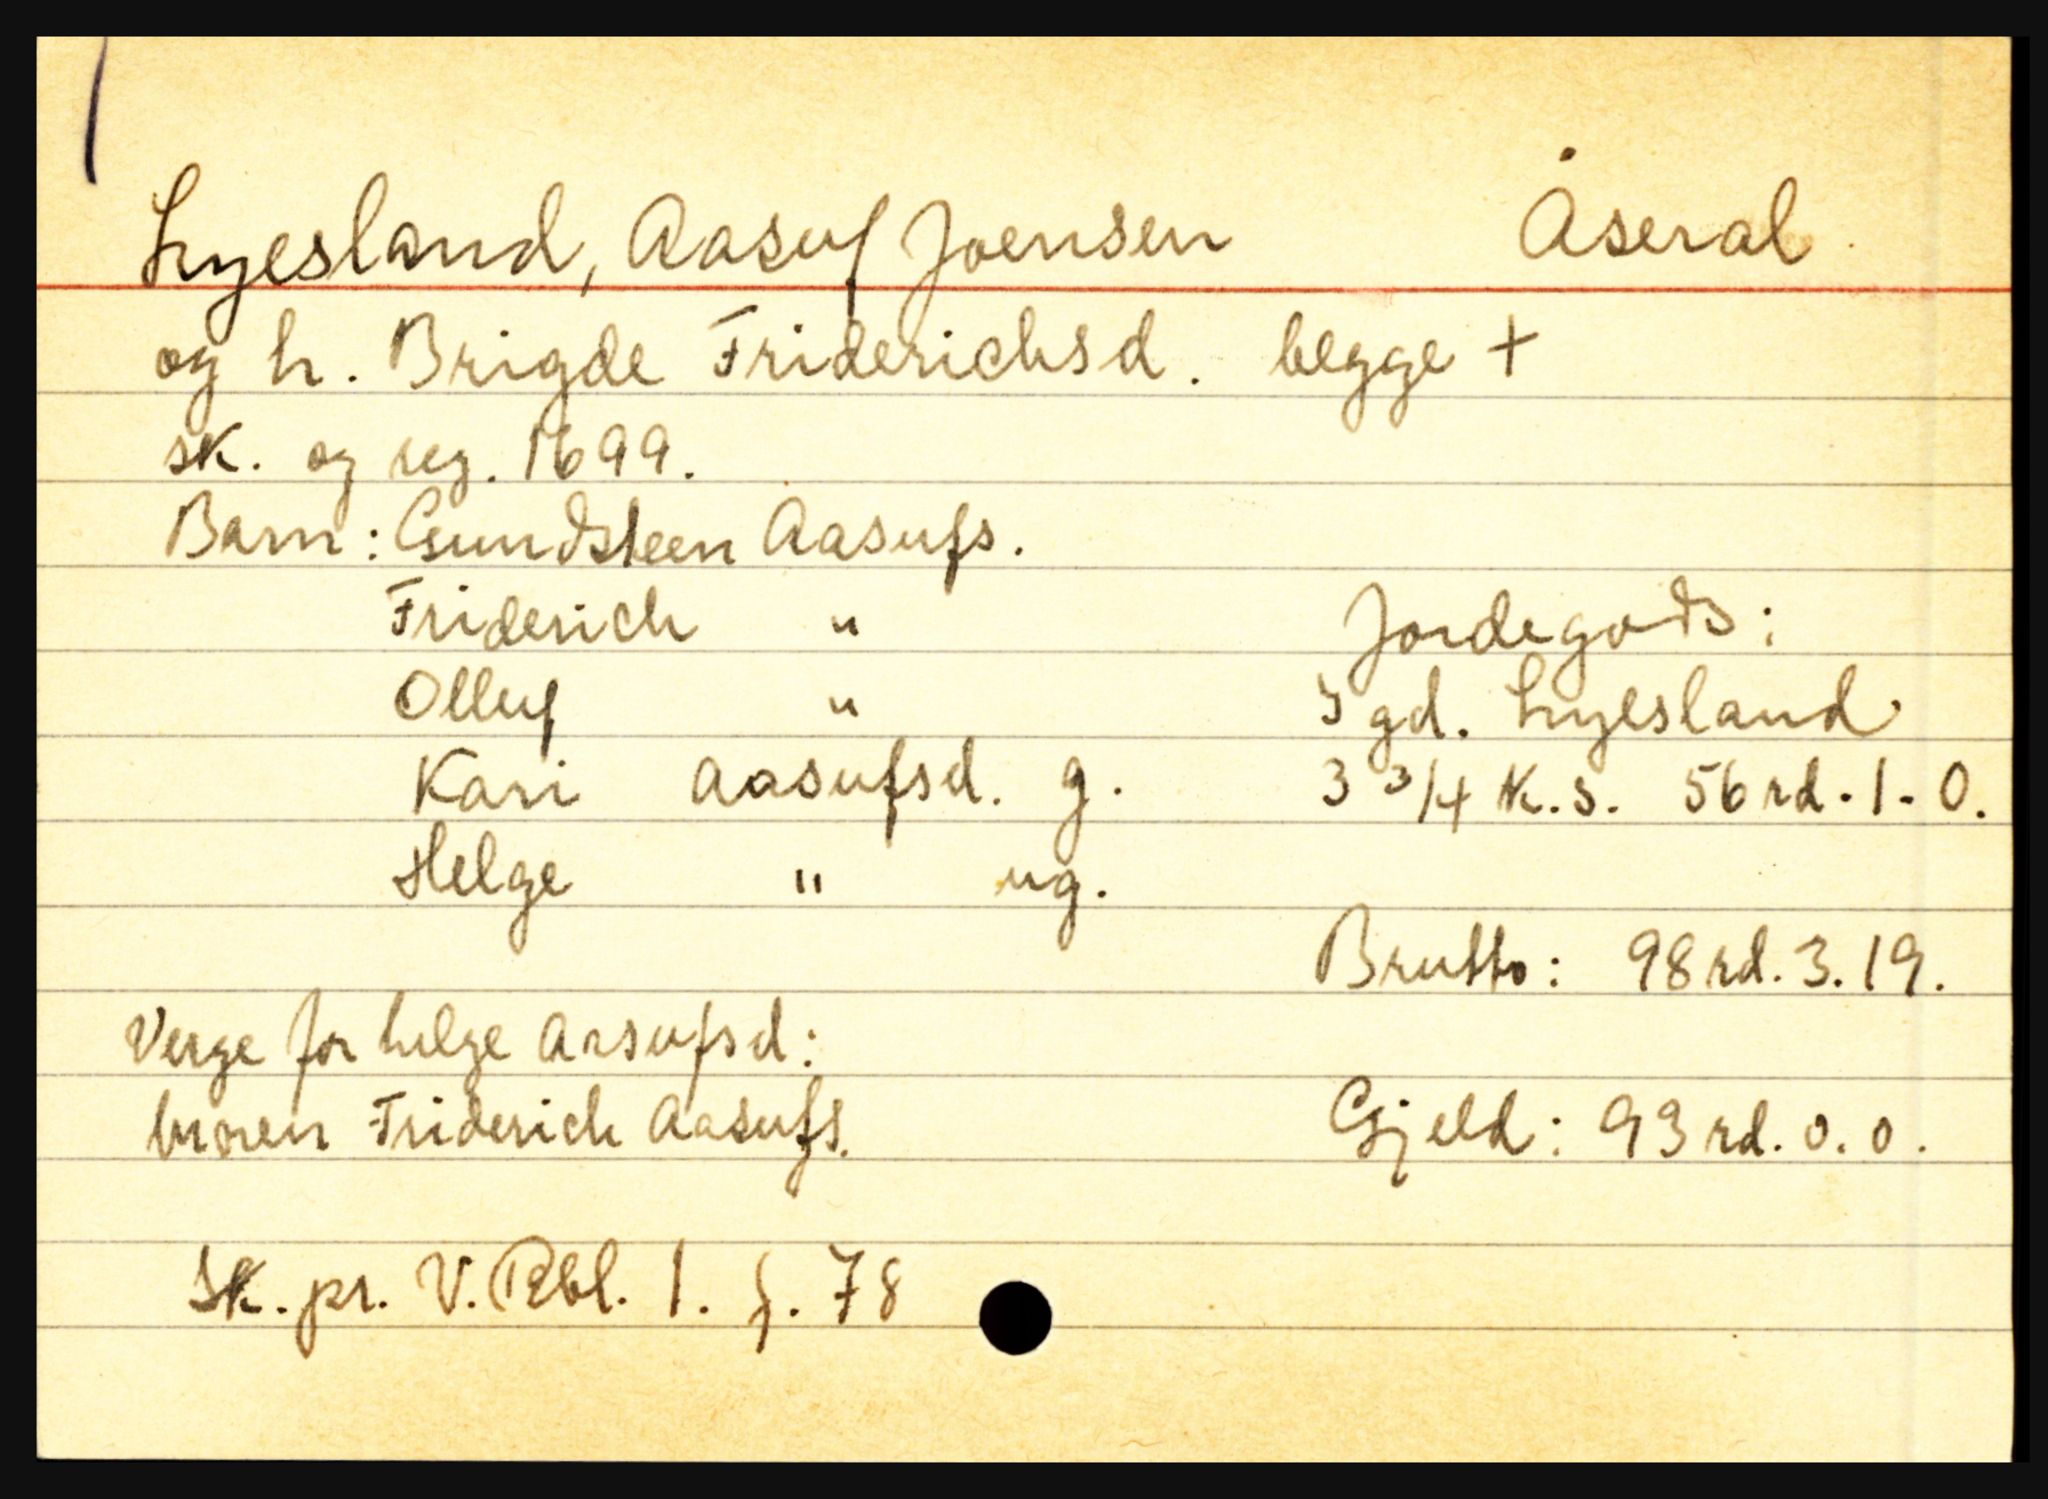 Lyesland, Aasuf Joensen Åseral
og h. Brigde Friderichsd. begge +
sk. og reg. 1699.
Barn: Gundsteen Aasufs.
Friderich "
Olluf "
Kari Aasufsd. g.
Helge " ug.
Jordegods:
I gd. Lyesland
3 3/4 k.s. 56 rd. 1. 0.
Brutto: 98 rd. 3. 19.
Gjeld: 93 rd. 0. 0.
Verge for helge Aasufsd:
broren Friderich Aasufs.
Sk. pr. V. Rbl. 1. f. 78